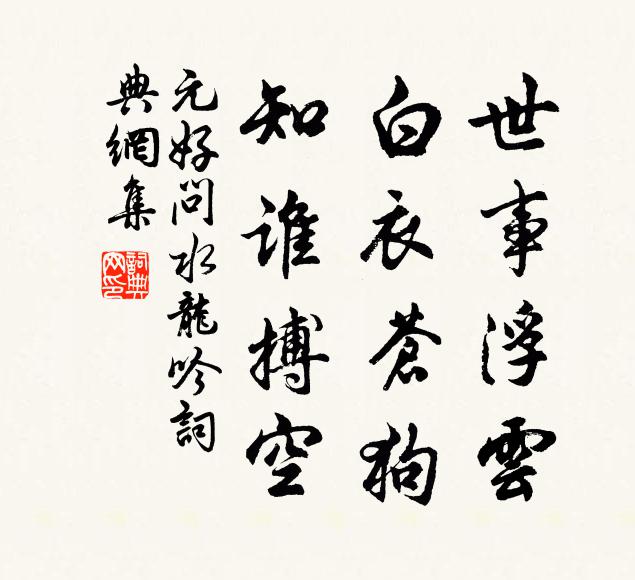 世事浮雲
白衣蒼狗
知誰搏空
元好問水龍吟詞
典網集
詞典網印